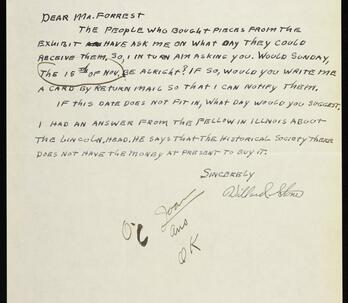 DEAR MR. FORREST
THE PEOPLE WHO BOUGHT PIECES FROM THE
EXHIBIT HAVE ASK ME ON WHAT DAY THEY COULD
RECEIVE THEM, SO, I IN TURN AM ASKING YOU. WOULD SUNDAY,
THE 15TH OF NOV. BE ALRIGHT? IF SO, WOULD YOU WRITE ME
A CARD BY RETURN MAIL SO THAT I CAN NOTIFY THEM.
IF THIS DATE DOES NOT FIT IN, WHAT DAY WOULD YOU SUGGEST.
I HAD AN ANSWER FROM THE FELLOW IN ILLINOIS ABOUT
THE LINCOLN, HEAD. HE SAYS THAT THE HISTORICAL SOCIETY THERE
DOES NOT HAVE THE MONEY AT PRESENT TO BUY IT.
SINCERELY
Willard Stone
Joan
ans
OK